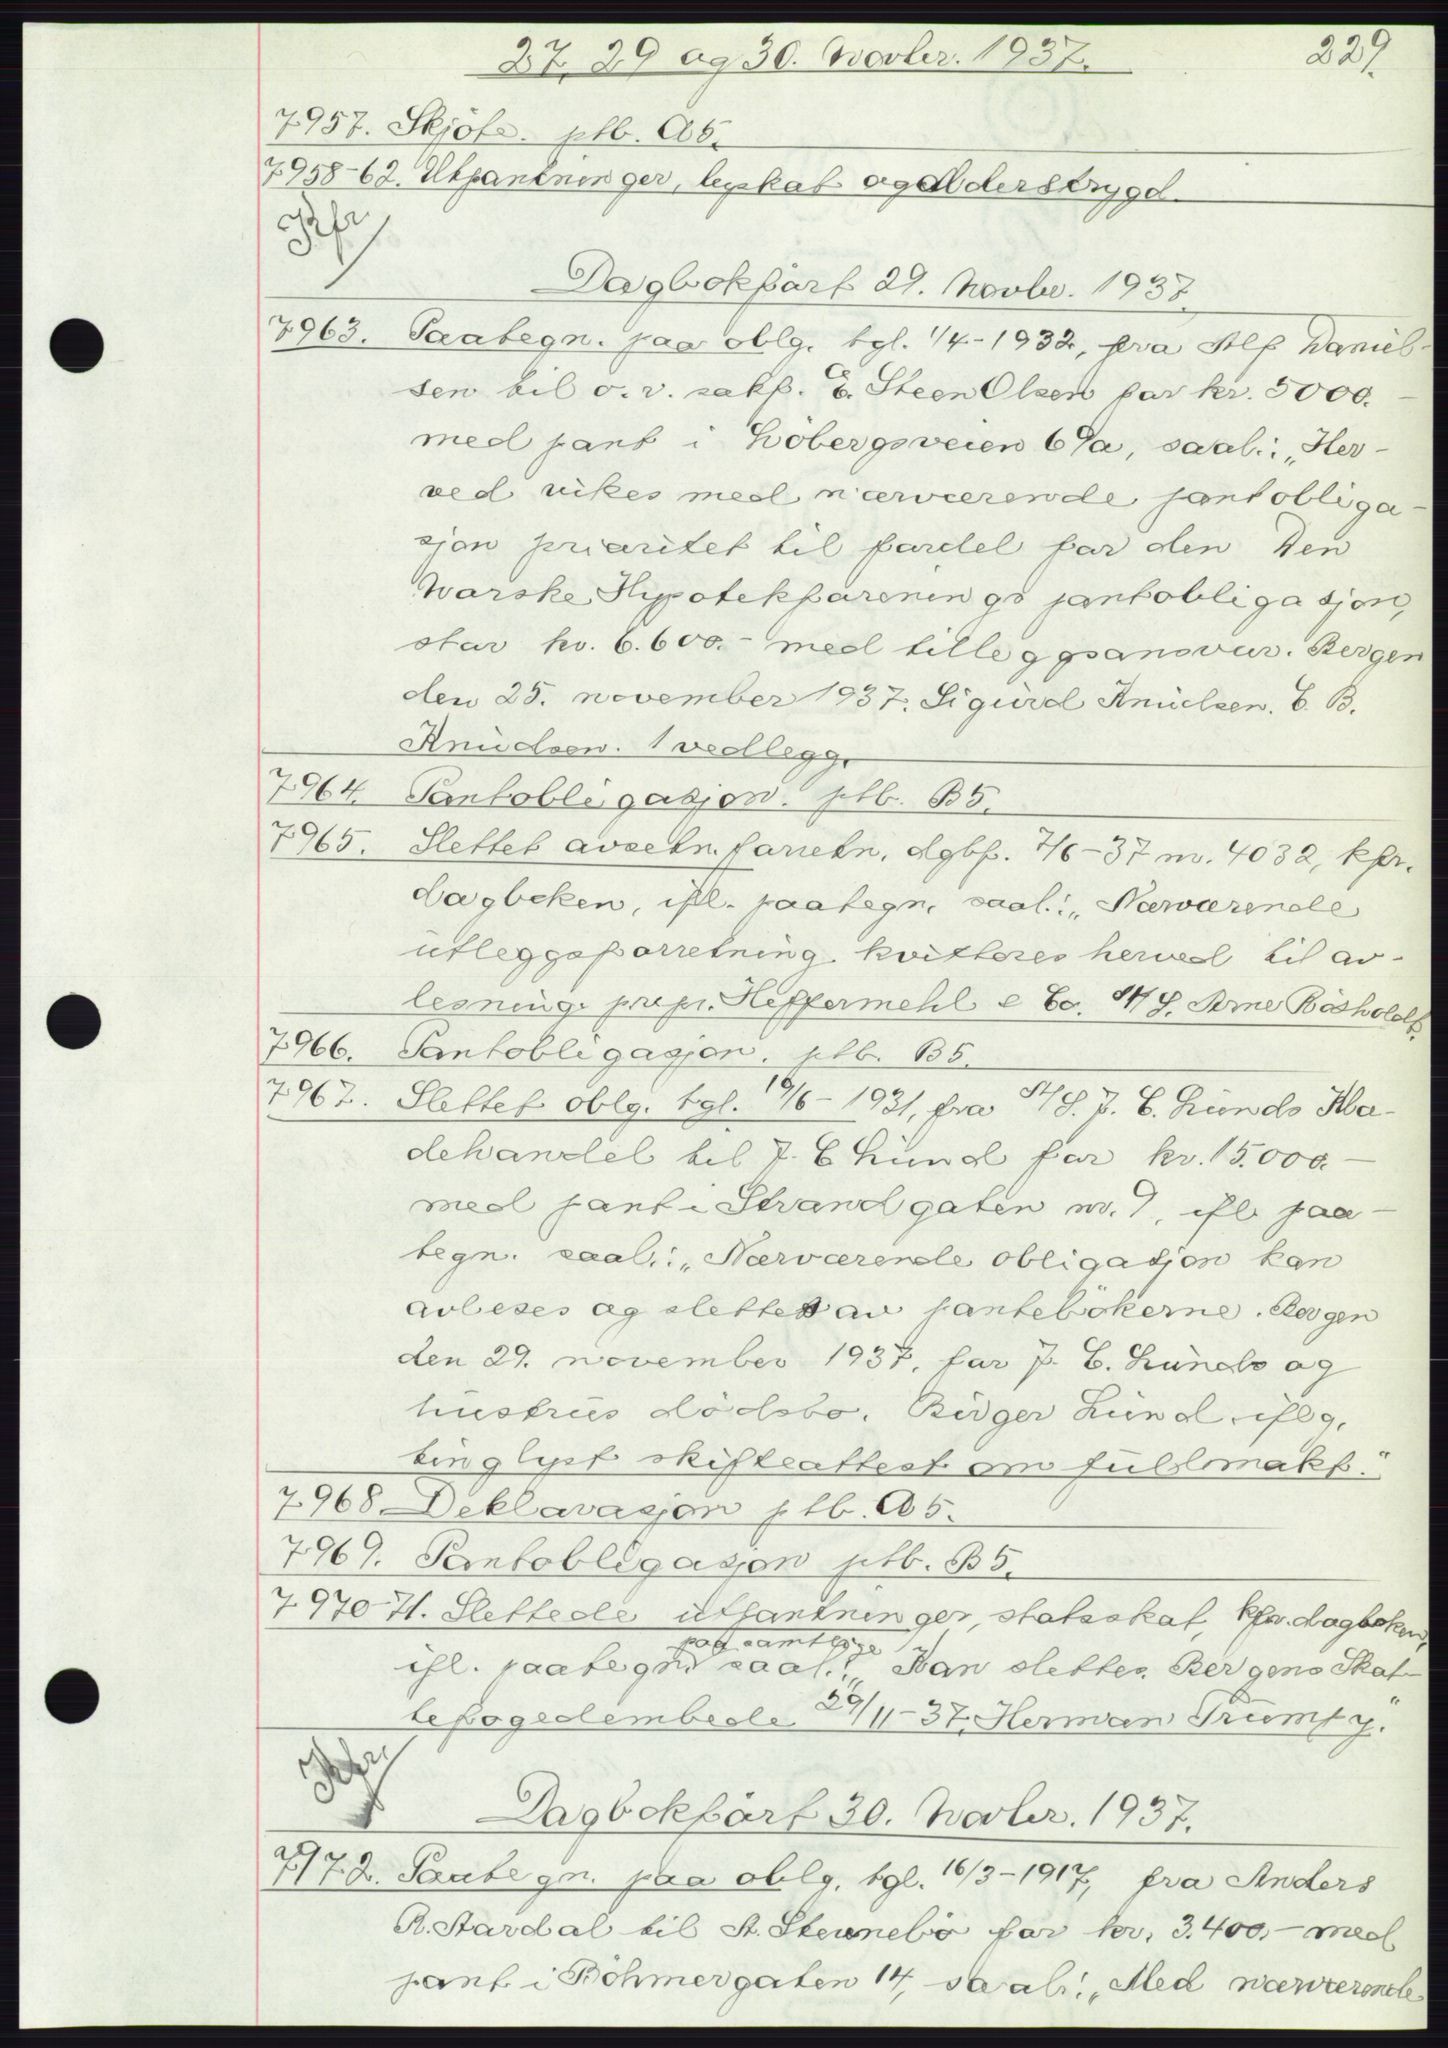 27, 29 og 30. Novbr. 1937.
229.
7957. Skjöte. ptb. A5.
7958-62. Utpantninger, byskat og Alderstrygd.
Kfr
Dagbokfört 29. Novbr. 1937.
7963. Paategn. paa oblg. tgl. 1/4-1932, fra Alf Daniel-
sen til o.r. sakf. C. Steen Olsen for kr. 5000.-
med pant i Löbergsveien 69a, saal.: „Her-
ved vikes med nærværende pantobliga-
sjon prioritet til fordel for den Den
Norske Hypotekforenings pantobligasjon,
stor kr. 6.600.- med tilleggsansvar. Bergen
den 25. november 1937. Sigurd Knudsen. C. B.
Knudsen. 1 vedlegg.
7964. Pantobligasjon. ptb. B5.
7965. Slettet avsetn. forretn. dgbf. 7/6-37 nr. 4032, kfr.
dagboken, ifl. paategn. saal.: „Nærværende
utleggsforretning kvitteres herved til av-
lesning. pr. pr. Heffermehl & Co. A/S. Arne Rösholdt.
7966. Pantobligasjon. ptb. B5.
7967. Slettet oblg. tgl. 19/6-1931, fra A/S. J. C. Lunds Klæ-
dehandel til J. C Lund for kr. 15.000.-
med pant i Strandgaten nr. 9, ifl. paa-
tegn. saal.: „Nærværende obligasjon kan
avleses og slettes av pantebökerne. Bergen
den 29. november 1937, for J. C. Lunds og
hustrus dödsbo. Birger Lund iflg.
tinglyst skifteattest om fullmakt."
7968. Deklarasjon ptb. A5.
7969. Pantobligasjon ptb. B5.
7970-71. Slettede utpantninger, statsskat, kfr. dagboken,
paa samtlige
ifl. paategn. saal.: „Kan slettes. Bergens Skat-
tefogedembede 29/11-37. Herman Trumpy."
Kfr
Dagbokfört 30. Novbr. 1937.
7972. Paategn. paa oblg. tgl. 16/3-1917, fra Anders
R. Stardal til A. Stennebö for kr. 3.400.- med
pant i Böhmergaten 14, saal.: „Med nærværende